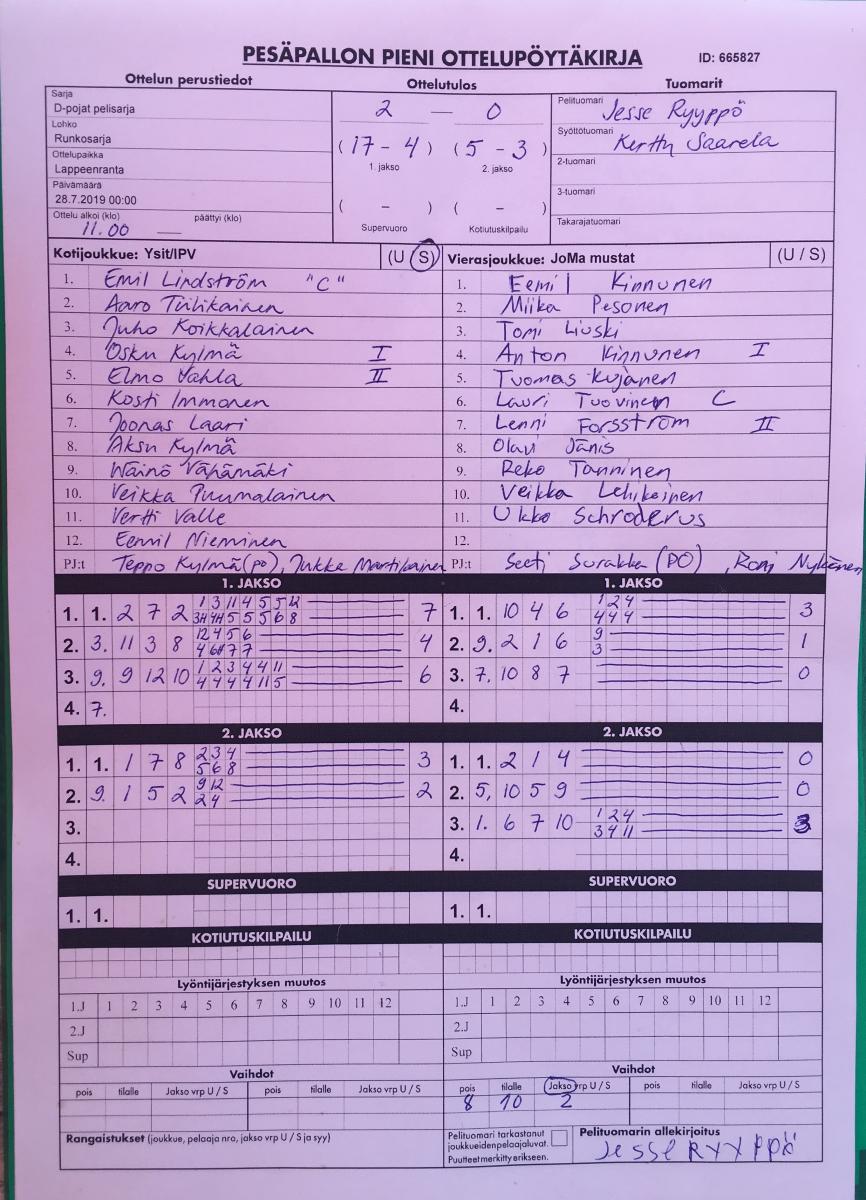 PESÄPALLON PIENI OTTELUPÖYTÄKIRJA ID: 665827
Ottelun perustiedot Ottelutulos Tuomarit
Sarja
D-pojat pelisarja
Lohko
Runkosarja
Ottelupaikka
Lappeenranta
Päivämäärä
28.7.2019 00:00
Ottelu alkoi (klo) päättyi (klo)
11.00 —
2 — 0
(17 - 4) (5 - 3)
1. jakso 2. jakso
( - ) ( - )
Supervuoro Kotiutuskilpailu
Pelituomari Jesse Ryyppö
Syöttötuomari Kerttu Saarela
2-tuomari
3-tuomari
Takarajatuomari
Kotijoukkue: Ysit/IPV (U S)
1. Emil Lindström "C"
2. Aaro Tiilikainen
3. Juho Koikkalainen
4. Osku Kylmä I
5. Elmo Vahla II
6. Kosti Immonen
7. Joonas Laari
8. Aksu Kylmä
9. Wäinö Vähämäki
10. Veikka Puumalainen
11. Vertti Valle
12. Eemil Nieminen
PJ:t Teppo Kylmä (po), Jukka Martikainen
Vierasjoukkue: JoMa mustat (U / S)
1. Eemil Kinnunen
2. Miika Pesonen
3. Tomi Liuski
4. Anton Kinnunen I
5. Tuomas Kujanen
6. Lauri Tuovinen C
7. Lenni Forsström II
8. Olavi Jänis
9. Reko Tanninen
10. Veikka Lehikoinen
11. Ukko Schroderus
12.
PJ:t Seeti Surakka (PO), Roni Nykänen
1. JAKSO
1. 1. 2 7 2 1 3 11 4 5 5 12 7
3 4 4 5 5 6 8
2. 3. 11 3 8 12 4 5 6 4
4 6 7 7
3. 9. 9 12 10 1 2 3 4 4 11 6
4 4 4 4 11 5
4. 7.
2. JAKSO
1. 1. 1 7 8 2 3 4 3
5 6 8
2. 9. 1 5 2 9 12 2
2 4
3.
4.
SUPERVUORO
1. 1.
KOTIUTUSKILPAILU
Lyöntijärjestyksen muutos
1.J 1 2 3 4 5 6 7 8 9 10 11 12
2.J
Sup
Vaihdot
pois tilalle Jakso vrp U / S pois tilalle Jakso vrp U / S
Rangaistukset (joukkue, pelaaja nro, jakso vrp U / S ja syy)
1. JAKSO
1. 1. 10 4 6 1 2 4 3
4 4 4
2. 9. 2 1 6 9 1
3
3. 7. 10 8 7 0
4.
2. JAKSO
1. 1. 2 1 4 0
2. 5, 10 5 9 0
3. 1. 6 7 10 1 2 4 3
3 4 11
4.
SUPERVUORO
1. 1.
KOTIUTUSKILPAILU
Lyöntijärjestyksen muutos
1.J 1 2 3 4 5 6 7 8 9 10 11 12
2.J
Sup
Vaihdot
pois tilalle Jakso vrp U / S pois tilalle Jakso vrp U / S
8 10 2
Pelituomari tarkastanut
joukkueiden pelaajaluvat.
Puutteet merkitty erikseen.
Pelituomarin allekirjoitus
Jesse Ryyppö